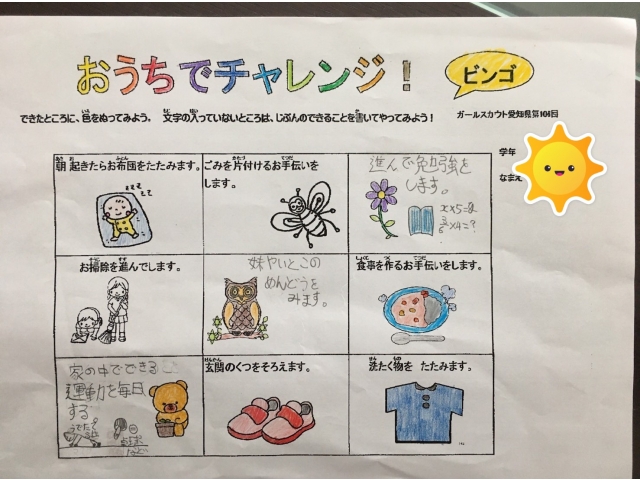 おうちでチャレンジ！
ビンゴ
できたところに、色をぬってみよう。 文字の入っていないところは、じぶんのできることを書いてやってみよう！
ガールスカウト愛知県第104団
学年
なまえ
朝 起きたらお布団をたたみます。
ごみを片付けるお手伝いを
します。
進んで勉強を
します。
お掃除を進んでします。
妹やいとこの
めんどうを
みます。
食事を作るお手伝いをします。
家の中でできる
運動を毎日
する
玄関のくつをそろえます。
洗たく物を たたみます。